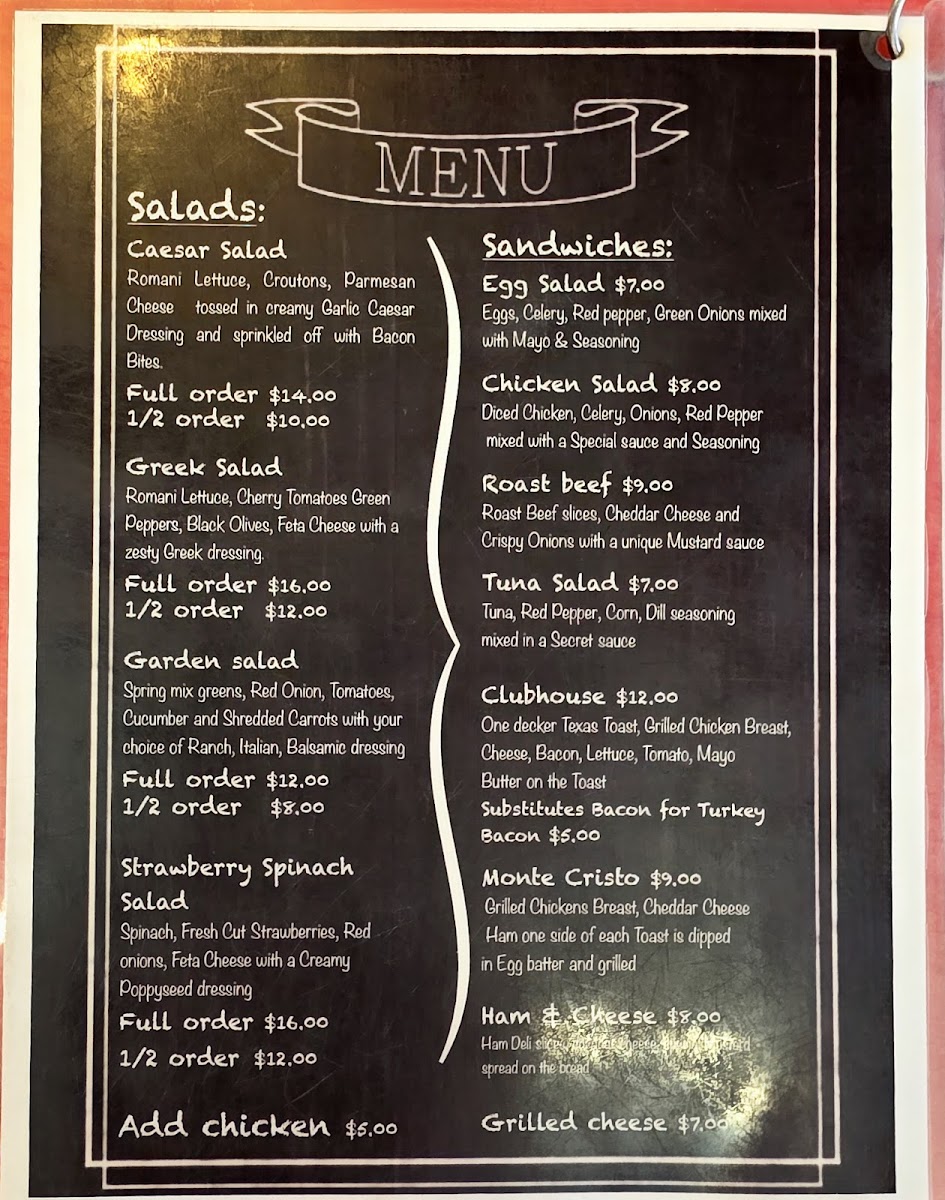 MENU
Salads:
Caesar Salad
Romani Lettuce, Croutons, Parmesan
Cheese tossed in creamy Garlic Caesar
Dressing and sprinkled off with Bacon
Bites.
Full order $14.00
1/2 order $10.00
Greek Salad
Romani Lettuce, Cherry Tomatoes Green
Peppers, Black Olives, Feta Cheese with a
zesty Greek dressing.
Full order $16.00
1/2 order $12.00
Garden salad
Spring mix greens, Red Onion, Tomatoes,
Cucumber and Shredded Carrots with your
choice of Ranch, Italian, Balsamic dressing
Full order $12.00
1/2 order $8.00
Strawberry Spinach
Salad
Spinach, Fresh Cut Strawberries, Red
onions, Feta Cheese with a Creamy
Poppyseed dressing
Full order $16.00
1/2 order $12.00
Add chicken $5.00
Sandwiches:
Egg Salad $7.00
Eggs, Celery, Red pepper, Green Onions mixed
with Mayo & Seasoning
Chicken Salad $8.00
Diced Chicken, Celery, Onions, Red Pepper
mixed with a Special sauce and Seasoning
Roast beef $9.00
Roast Beef slices, Cheddar Cheese and
Crispy Onions with a unique Mustard sauce
Tuna Salad $7.00
Tuna, Red Pepper, Corn, Dill seasoning
mixed in a Secret sauce
Clubhouse $12.00
One decker Texas Toast, Grilled Chicken Breast,
Cheese, Bacon, Lettuce, Tomato, Mayo
Butter on the Toast
Substitutes Bacon for Turkey
Bacon $5.00
Monte Cristo $9.00
Grilled Chickens Breast, Cheddar Cheese
Ham one side of each Toast is dipped
in Egg batter and grilled
Ham & Cheese $8.00
Ham Deli
spread on the bread
Grilled cheese $7.00